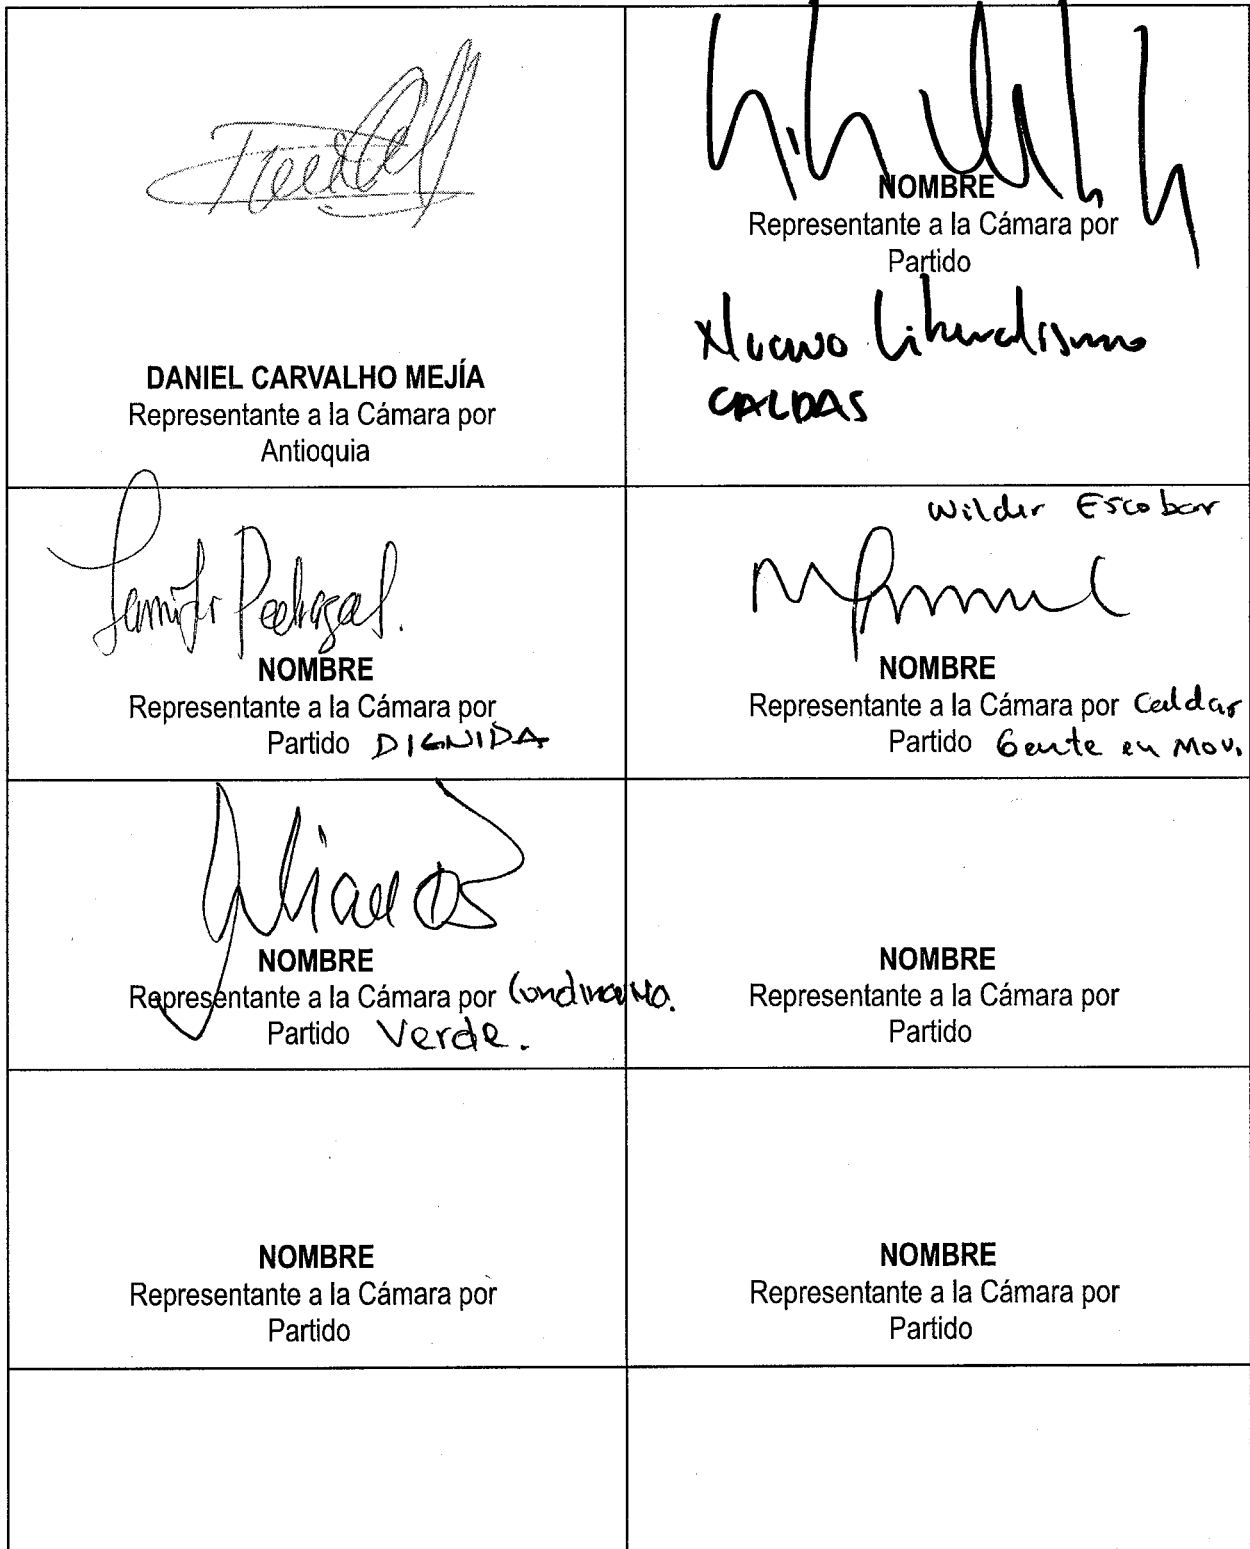 DANIEL CARVALHO MEJÍA
Representante a la Cámara por
Antioquia
NOMBRE
Representante a la Cámara por
Partido
Nuevo Liberalismo
CALDAS
Jennifer Pedraza S.
NOMBRE
Representante a la Cámara por
Partido DIGNIDA
Wilder Escobar
NOMBRE
Representante a la Cámara por Caldas
Partido Gente en Mov.
NOMBRE
Representante a la Cámara por
Partido Verde.
NOMBRE
Representante a la Cámara por
Partido
NOMBRE
Representante a la Cámara por
Partido
NOMBRE
Representante a la Cámara por
Partido